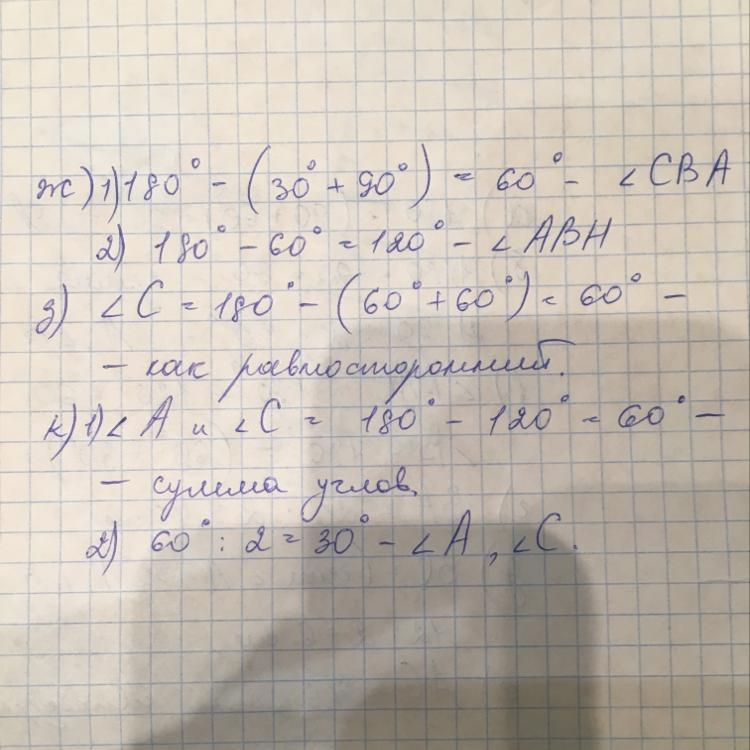 ж) 1) 180° - (30° + 90°) = 60° - ∠CBA
2) 180° - 60° = 120° - ∠ABH
з) ∠C = 180° - (60° + 60°) = 60° -
- как равносторонний.
к) 1) ∠A и ∠C = 180° - 120° = 60° -
- сумма углов.
2) 60° : 2 = 30° - ∠A, ∠C.